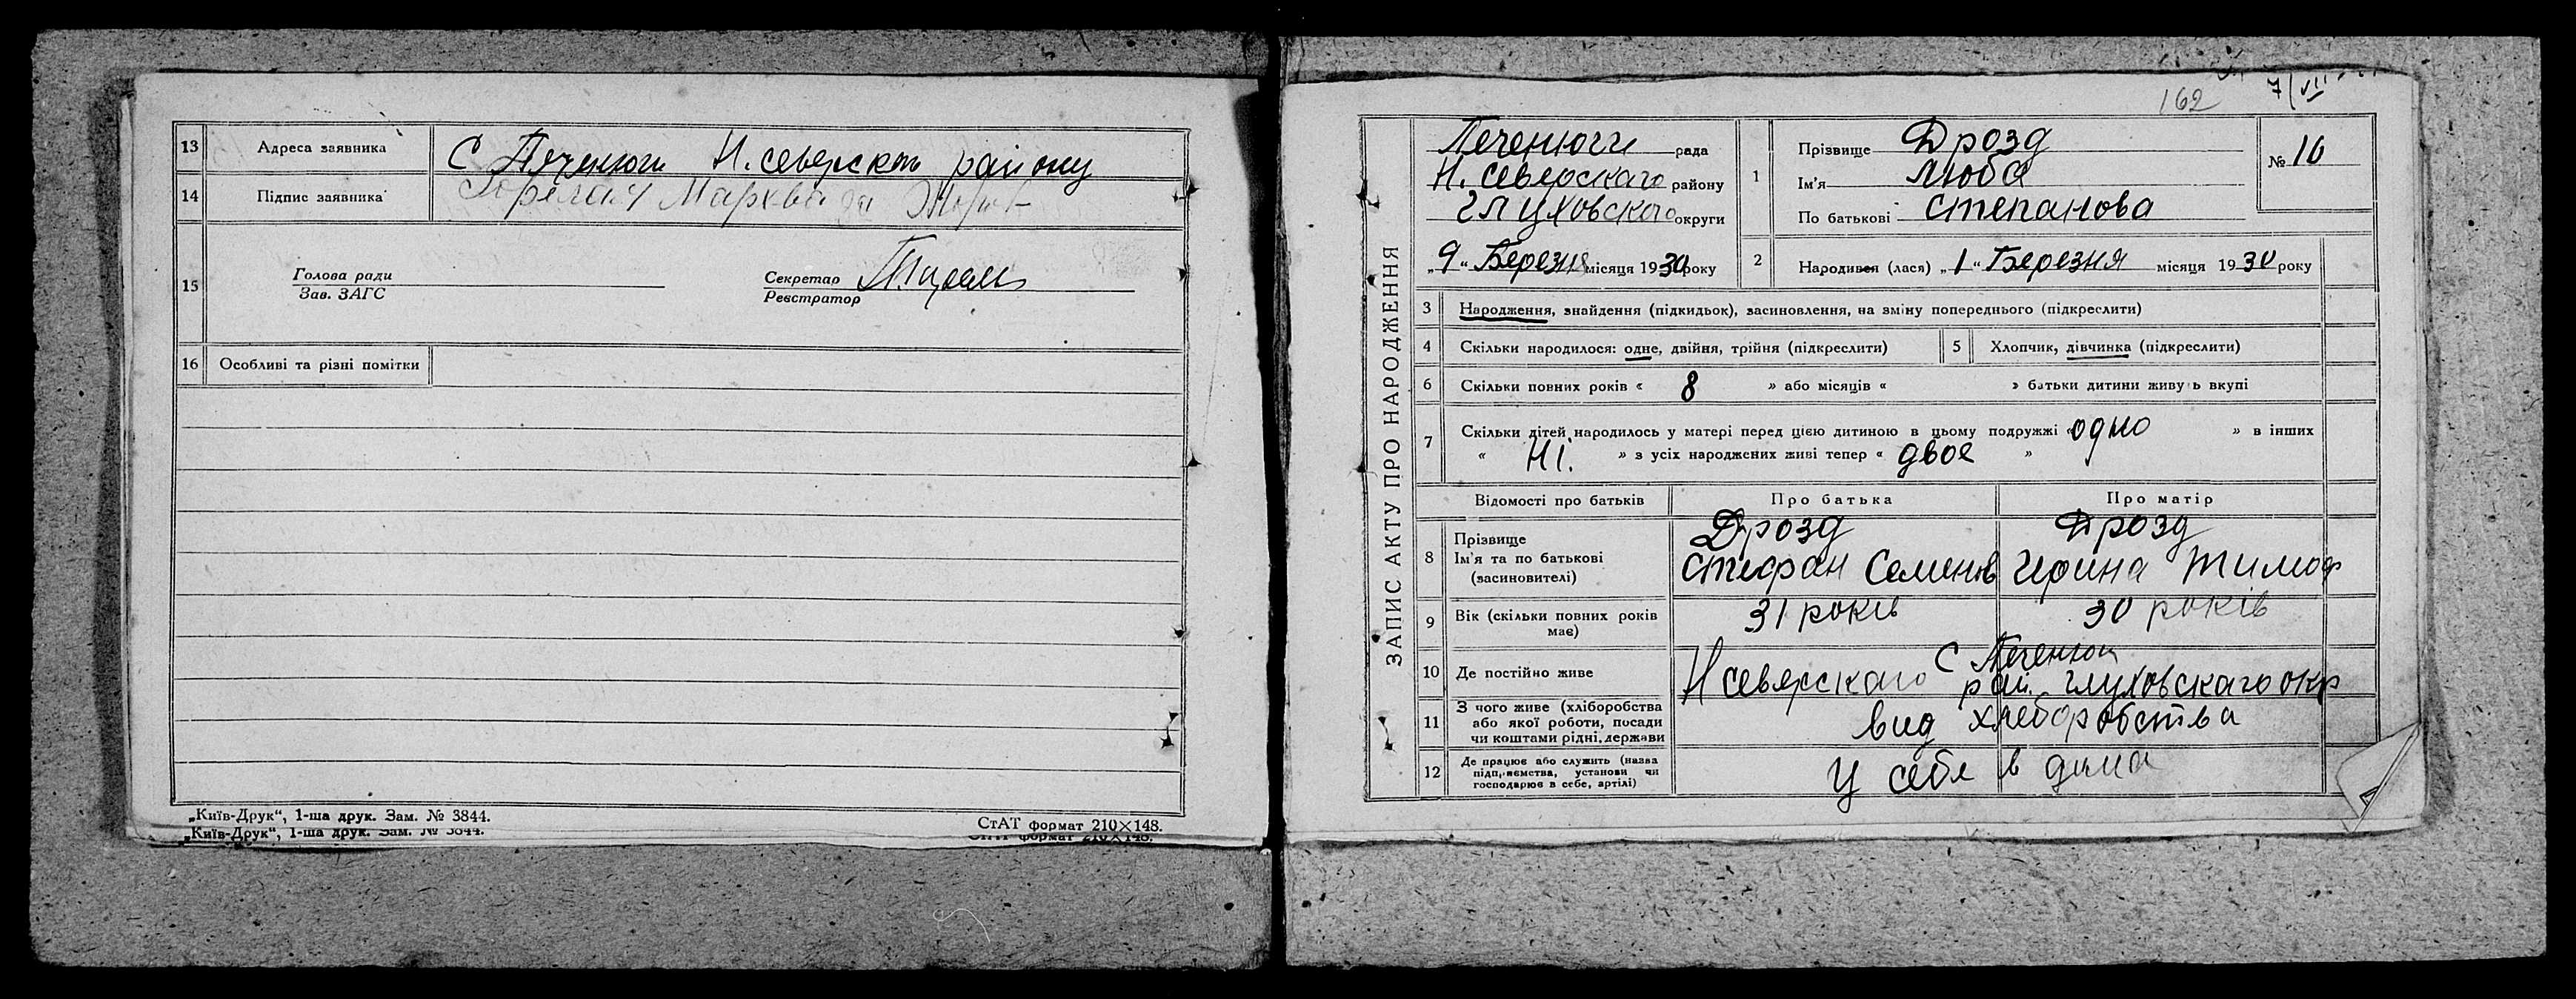 13 Адреса заявника С Печенюги Н. севярского району
14 Підпис заявника
15 Голова ради
Зав. ЗАГС
Секретар
Реєстратор
16 Особливі та різні помітки
„Київ-Друк“, 1-ша друк. Зам. № 3844.
СтАТ формат 210×148.
„Київ-Друк“, 1-ша друк. Зам. № 3844.
СтАТ формат 210×148.
162
7/VII
ЗАПИС АКТУ ПРО НАРОДЖЕННЯ
Печенюги рада
Н. Севярскаго району
Глуховского округи
„9“ Березня місяця 1930 року
1 Прізвище Дрозд
Ім'я Люба
По батькові Степанова
№ 10
2 Народився (лася) „1“ Березня місяця 1930 року
3 Народження, знайдення (підкидьок), засиновлення, на зміну попереднього (підкреслити)
4 Скільки народилося: одне, двійня, трійня (підкреслити)
5 Хлопчик, дівчинка (підкреслити)
6 Скільки повних років « 8 » або місяців « » батьки дитини живуть вкупі
7 Скільки дітей народилось у матері перед цією дитиною в цьому подружжі «одно » в інших
« Ні. » з усіх народжених живі тепер « двое »
Відомості про батьків Про батька Про матір
8 Прізвище
Ім'я та по батькові
(засиновителі)
Дрозд
Стефан Семенов
Дрозд
Ирина Тимоф
9 Вік (скільки повних років має) 31 років 30 років
10 Де постійно живе С Печенюги
Н севярскаго рай. Глуховскаго окр
11 З чого живе (хліборобства
або якої роботи, посади
чи коштами рідні, держави
вид хлеборобства
12 Де працює або служить (назва
підприємства, установи чи
господарює в себе, артілі)
У себе в дома